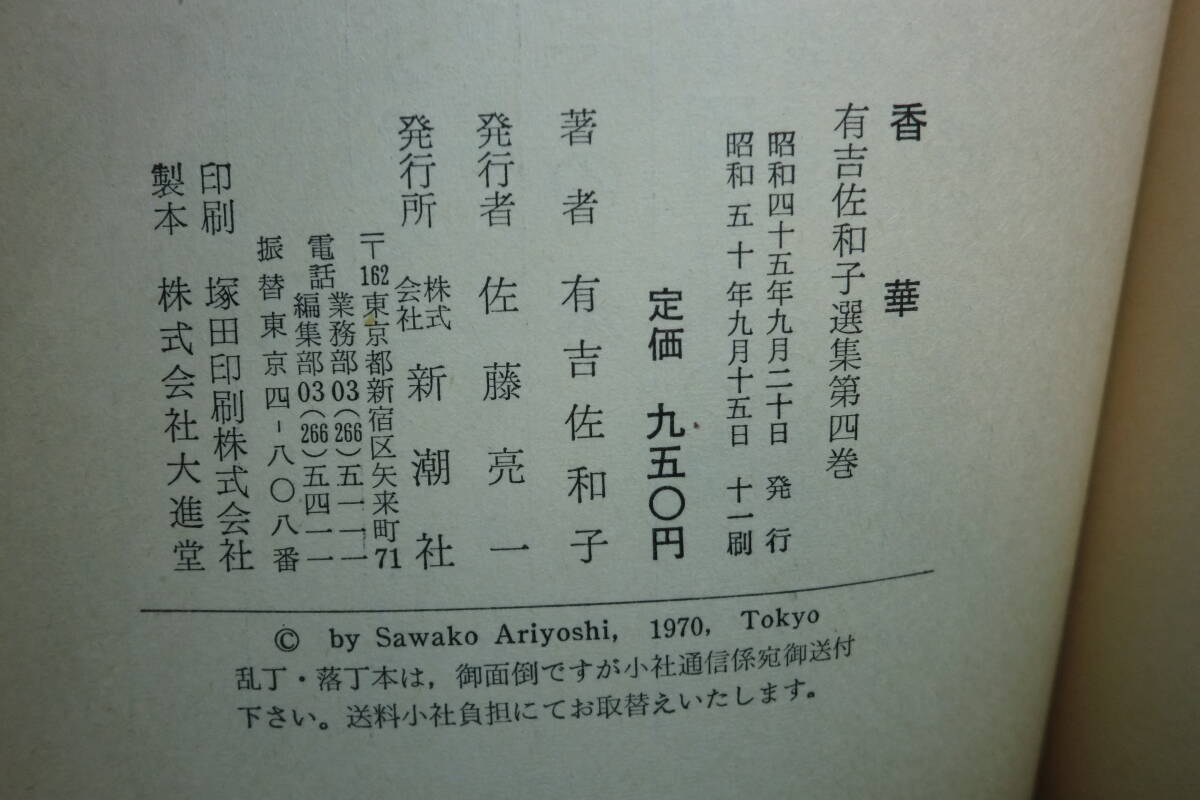 香華
有吉佐和子選集第四巻
昭和四十五年九月二十日 発行
昭和五十年九月十五日 十一刷
定価 九五〇円
著者 有吉佐和子
発行者 佐藤亮一
発行所 株式会社 新潮社
〒162東京都新宿区矢来町71
電話 業務部03(266)五一一一
編集部03(266)五四一一
振替東京四-八〇八番
印刷 塚田印刷株式会社
製本 株式会社大進堂
© by Sawako Ariyoshi, 1970, Tokyo
乱丁・落丁本は，御面倒ですが小社通信係宛御送付
下さい。送料小社負担にてお取替えいたします。